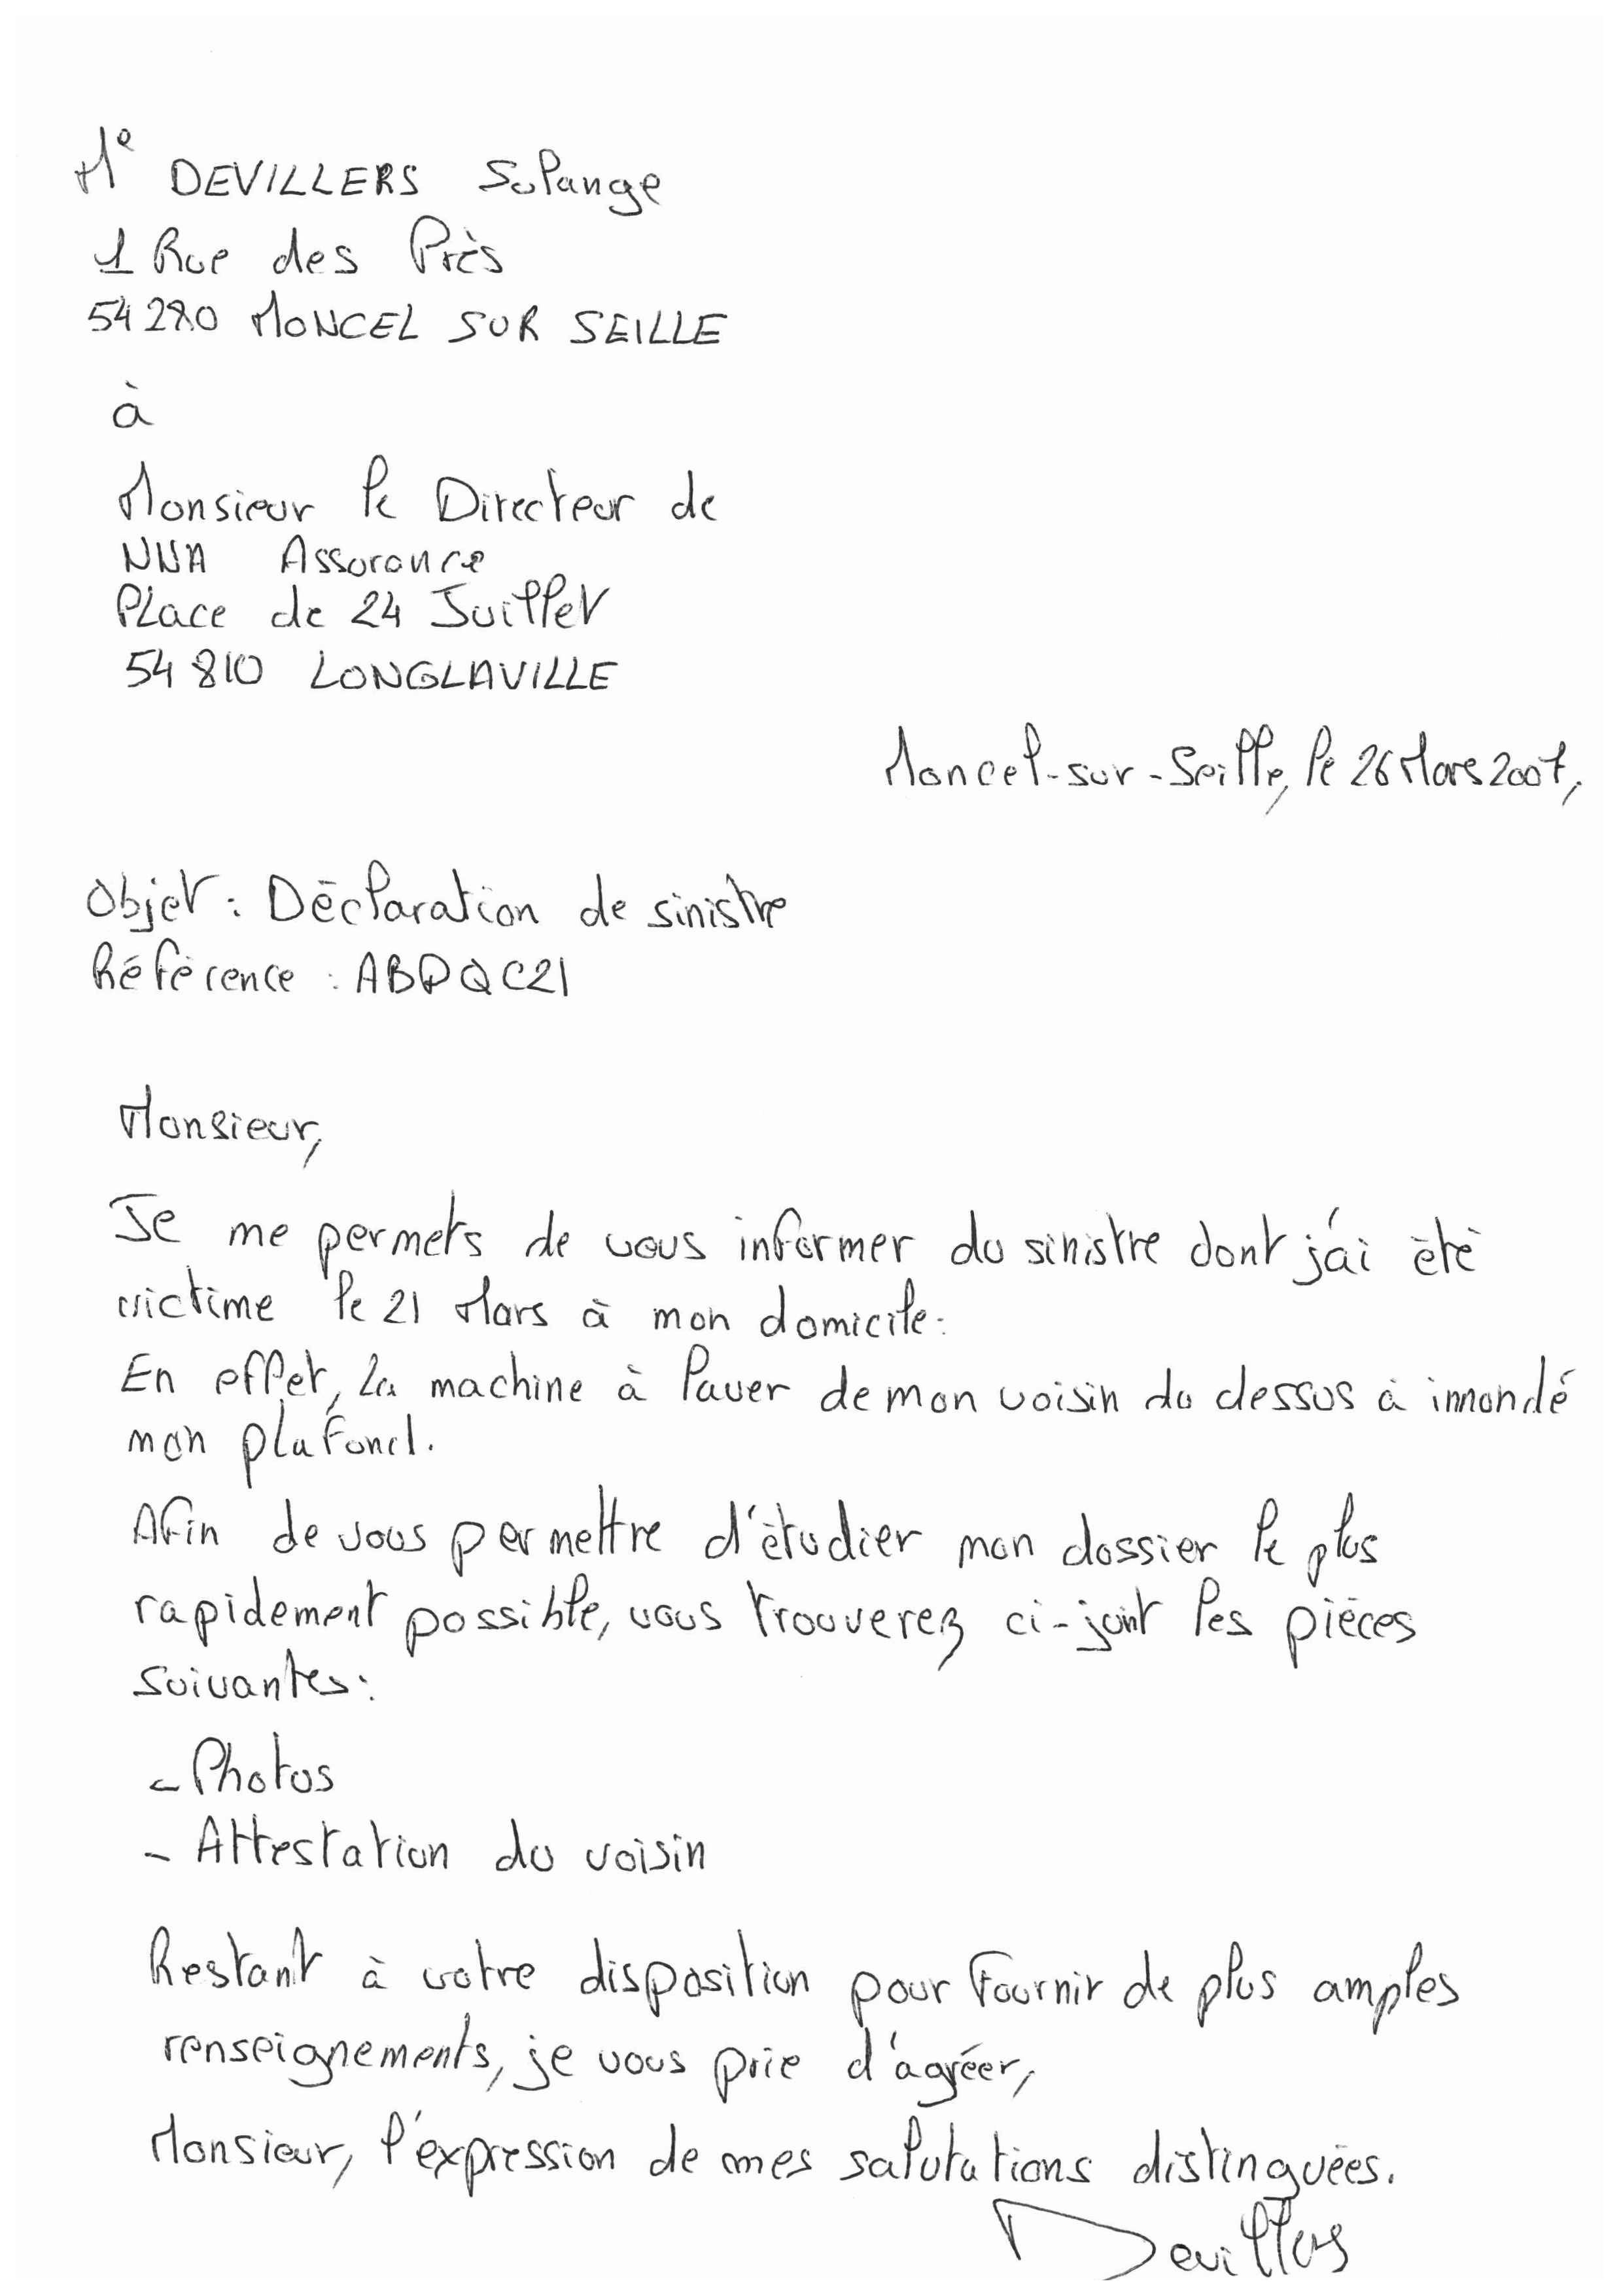 Me DEVILLERS Solange
1 Rue des Près
54280 MONCEL SUR SEILLE
à
Monsieur le Directeur de
NNA Assurance
Place de 24 Juillet
54810 LONGLAVILLE
Moncel-sur-Seille, le 26 Mars 2007,
Objet : Déclaration de sinistre
Référence : ABDQC21
Monsieur,
Je me permets de vous informer du sinistre dont j'ai été
victime le 21 Mars à mon domicile.
En effet, la machine à laver de mon voisin du dessus à innondé
mon plafond.
Afin de vous permettre d'étudier mon dossier le plus
rapidement possible, vous trouverez ci-joint les pièces
suivantes :
- Photos
- Attestation du voisin
Restant à votre disposition pour fournir de plus amples
renseignements, je vous prie d'agréer,
Monsieur, l'expression de mes salutations distinguées.
Devillers